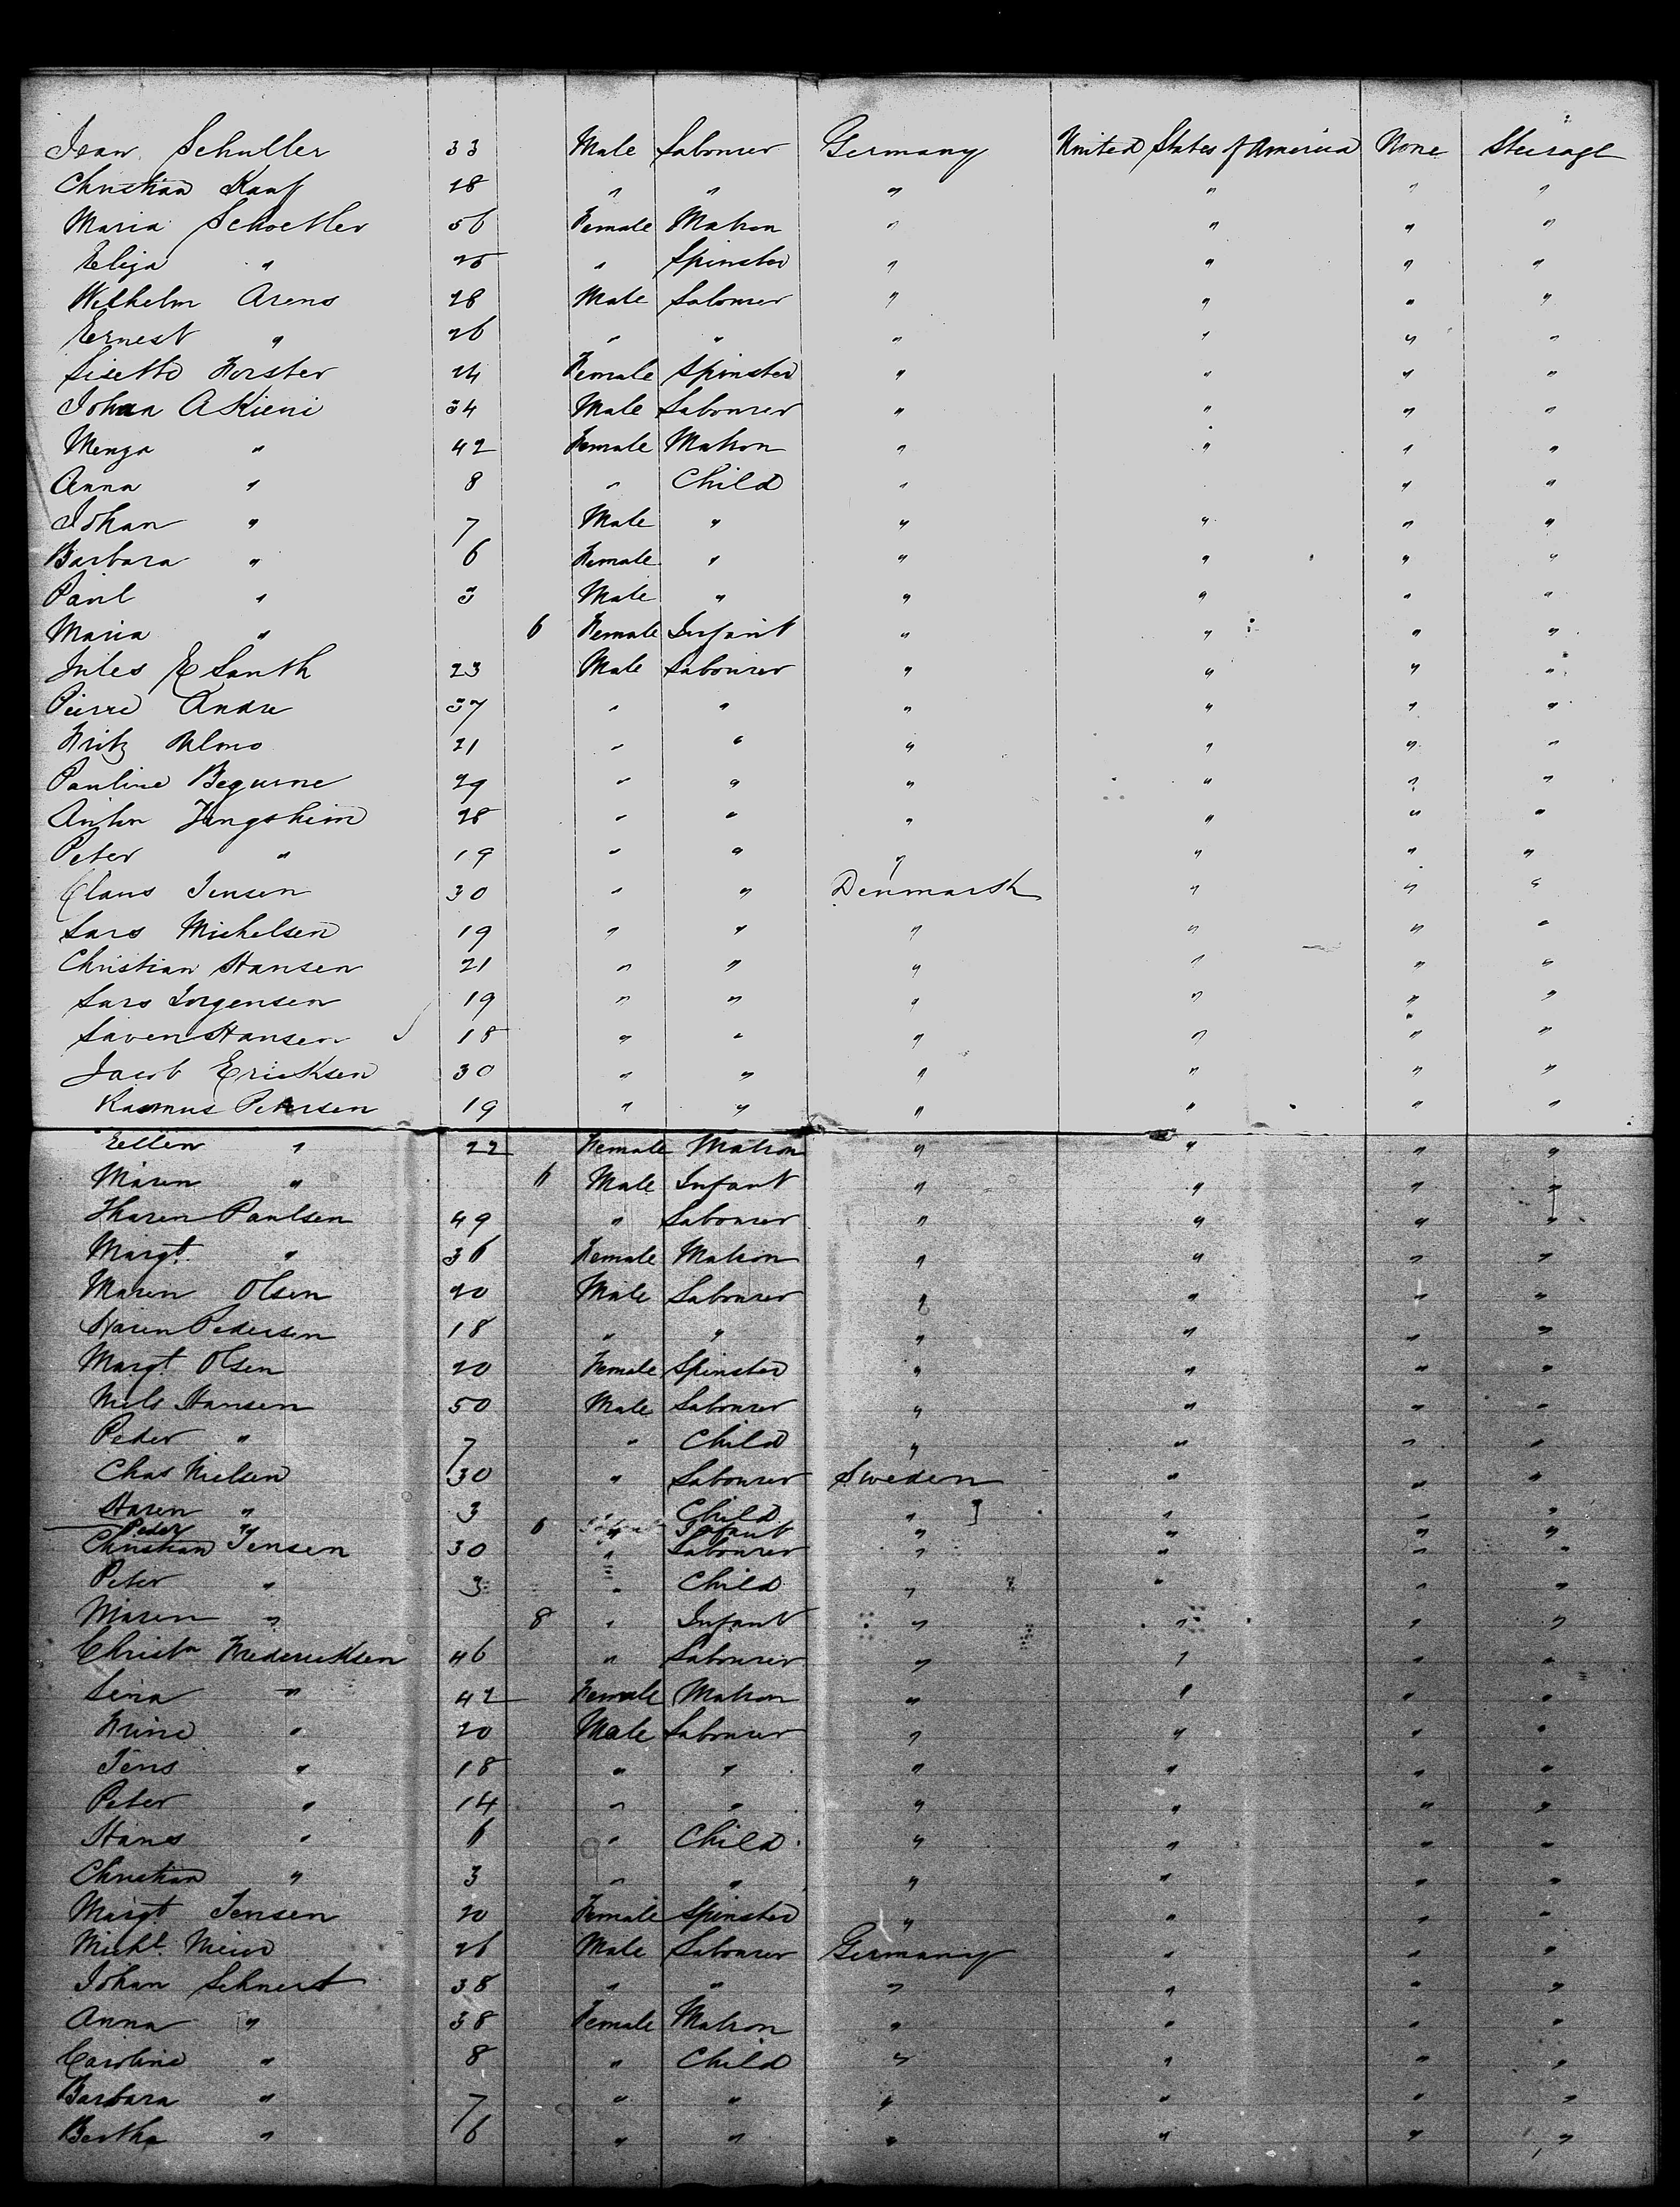 Jean Schuller 33 Male Labourer Germany United States of America None Steerage
Christian Kauf 28 " " " " " "
Maria Schoetler 56 Female Matron " " " "
Eliza " 25 " Spinster " " " "
Wilhelm Arens 28 Male Labourer " " " "
Ernest " 26 " " " " " "
Lisette Forster 24 Female Spinster " " " "
Johan A Kieni 34 Male Labourer " " " "
Menga " 42 Female Matron " " " "
Anna " 8 " Child " " "
Johan " 7 Male " " " " "
Barbara " 6 Female " " " " "
Paul " 3 Male " " " " "
Maria " 6 Female Infant " " " "
Jules E Santh 23 Male Labourer " " " "
Pierre Andre 37 " " " " " "
Fritz 21 " " " " " "
Pauline Begurne 29 " " " " " "
Anton Jungsheim 28 " " " " " "
Peter " 19 " " " " " "
Claus Jensen 30 " " Denmark " " "
Lars Michelsen 19 " " " " " "
Christian Hansen 21 " " " " " "
Lars Jorgensen 19 " " " " " "
Saven Hansen 18 " " " " " "
Jacob Ericksen 30 " " " " " "
Rasmus Petersen 19 " " " " " "
Ellen " 22 Female Matron " " " "
Maren " 6 Male Infant " " " "
Karen Paulsen 49 " Labourer " " " "
Margt. " 36 Female Matron " " " "
Maren Olsen 20 Male Labourer " " " "
Karen Pedersen 18 " " " " " "
Margt Olsen 20 Female Spinster " " " "
Niels Hansen 50 Male Labourer " " " "
Peder " 7 " Child " " " "
Chas Nielsen 30 " Labourer Sweden " " "
Karen " 3 Child " " " "
Peder " 6 " Infant " " " "
Christian Jensen 30 " Labourer " " " "
Peter " 3 " Child " " " "
Maren " 8 " Infant " " " "
Christn Fredericksen 46 " Labourer " " " "
Lena " 42 Female Matron " " " "
Trine " 20 Male Labourer " " " "
Jens " 18 " " " " " "
Peter " 14 " " " " " "
Hans " 6 " Child " " " "
Christian " 3 " " " " " "
Margt Jensen 20 Female Spinster " " " "
Michl Meier 26 Male Labourer Germany " " "
Johan Schnert 38 " " " " " "
Anna " 38 Female Matron " " " "
Caroline " 8 " Child " " " "
Barbara " 7 " " " " " "
Bertha " 6 " " " " " "